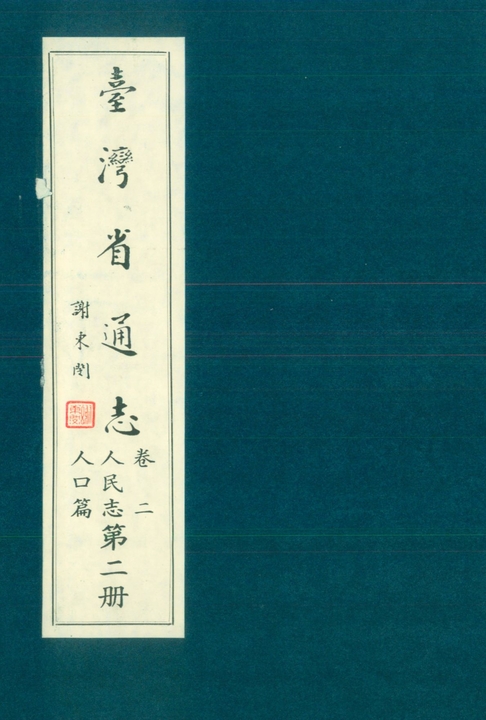 臺灣省通志
卷二
人民志第二册
人口篇
謝東閔